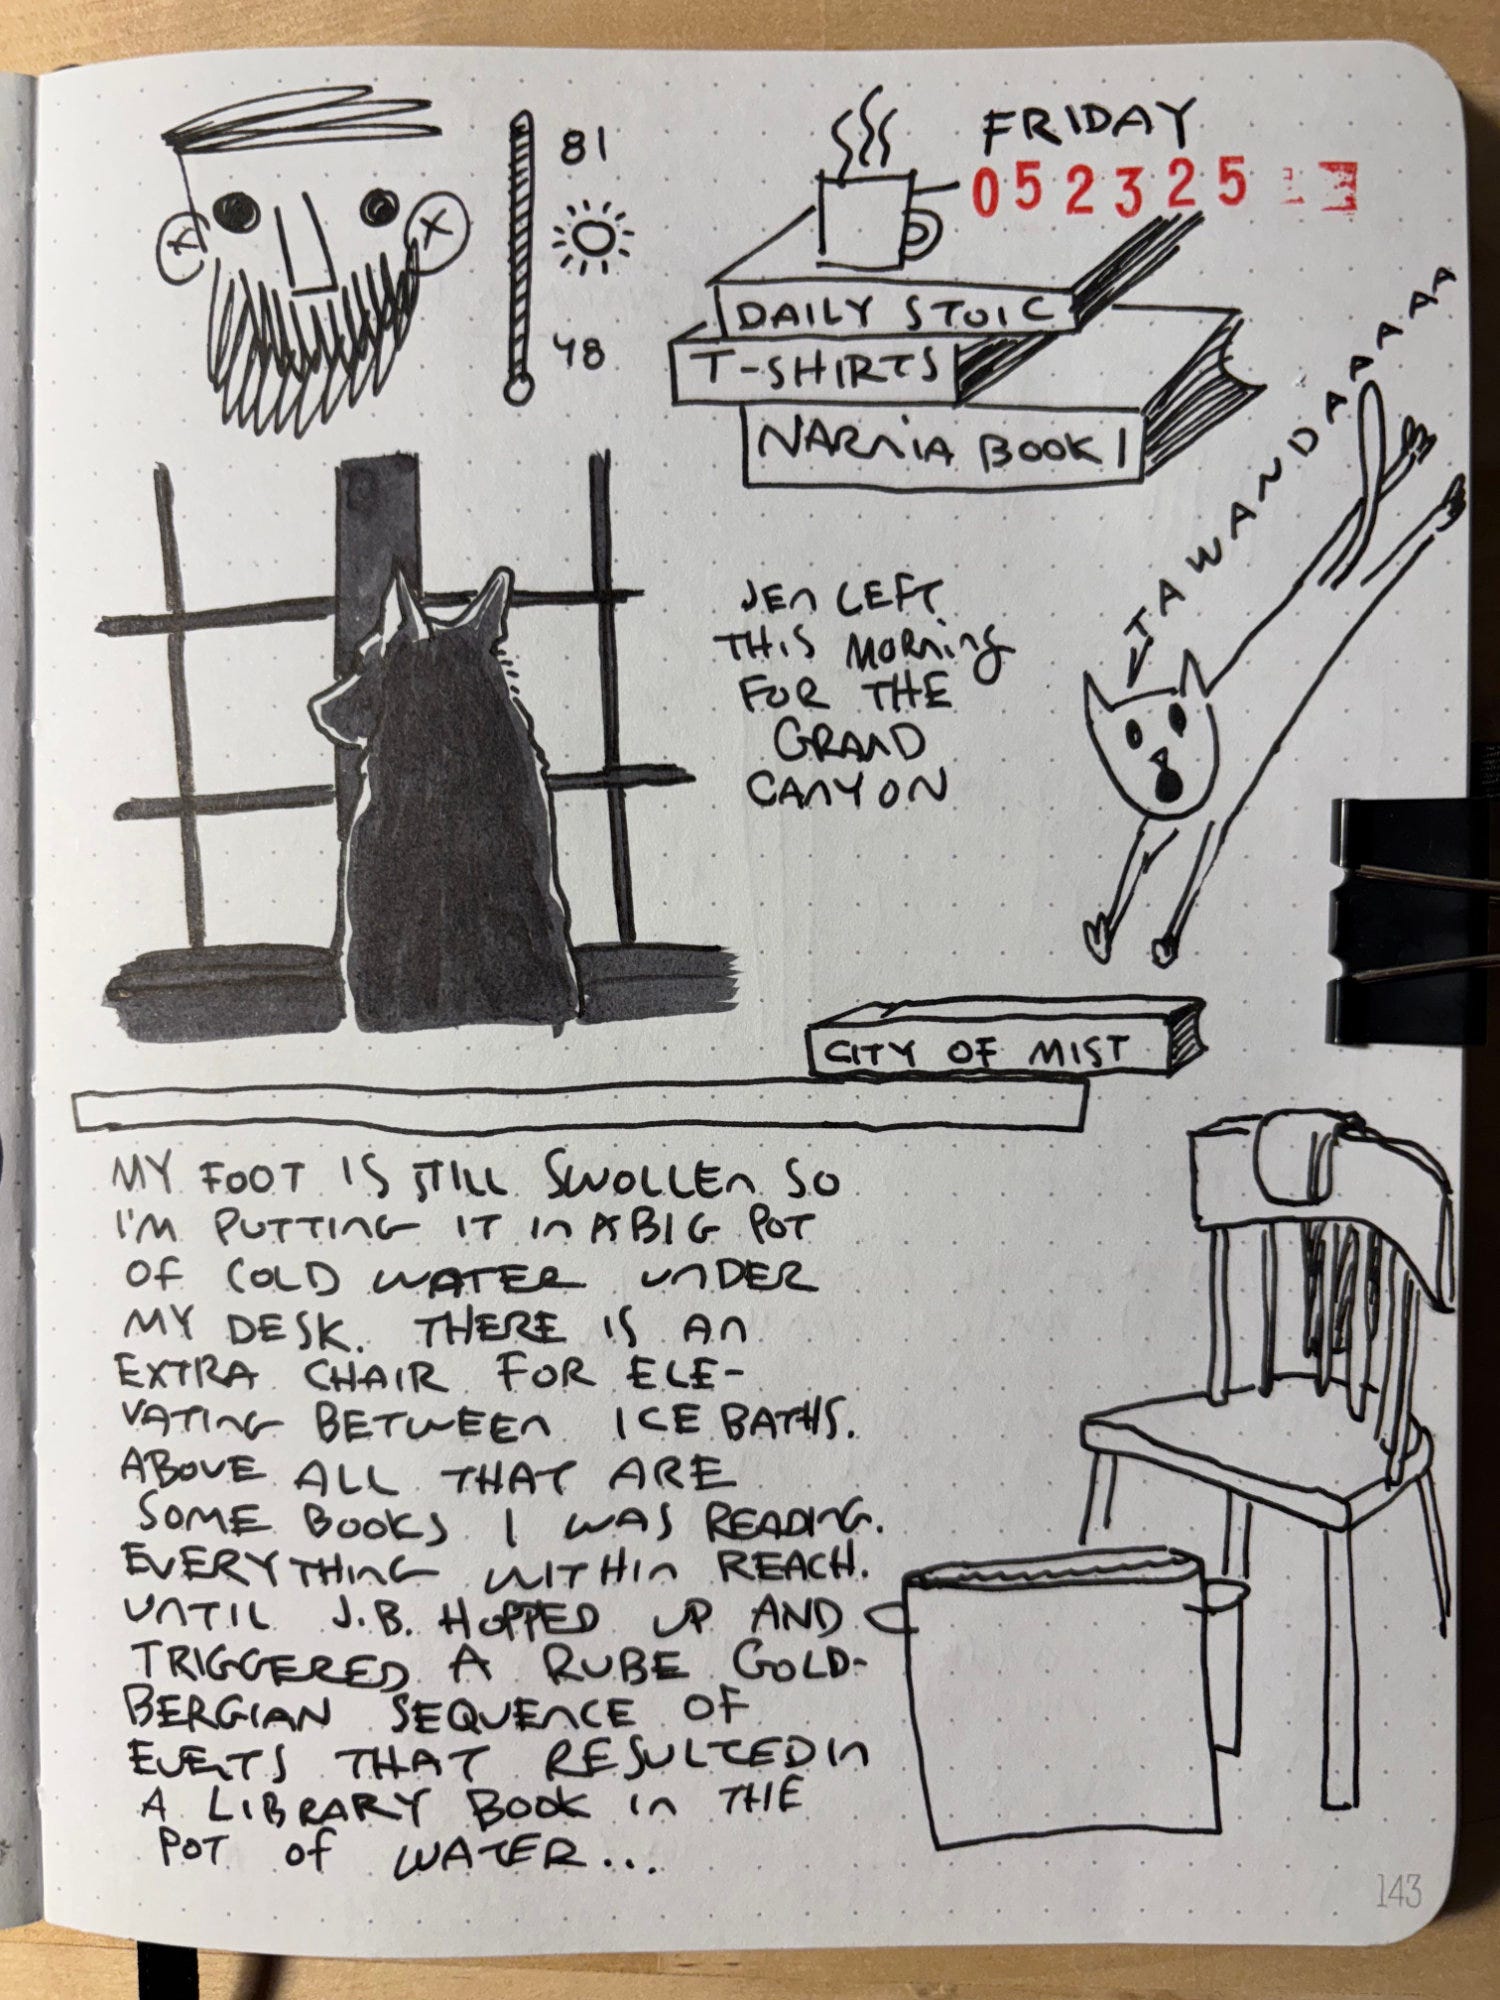 81
48
FRIDAY
052325
DAILY STOIC
T-SHIRTS
NARNIA BOOK 1
TAWANDAAAAAA
JEN LEFT
THIS MORNING
FOR THE
GRAND
CANYON
CITY OF MIST
MY FOOT IS STILL SWOLLEN SO
I'M PUTTING IT IN A BIG POT
OF COLD WATER UNDER
MY DESK. THERE IS AN
EXTRA CHAIR FOR ELE-
VATING BETWEEN ICE BATHS.
ABOVE ALL THAT ARE
SOME BOOKS I WAS READING.
EVERYTHING WITHIN REACH.
UNTIL J.B. HOPPED UP AND
TRIGGERED A RUBE GOLD-
BERGIAN SEQUENCE OF
EVENTS THAT RESULTED IN
A LIBRARY BOOK IN THE
POT OF WATER...
143